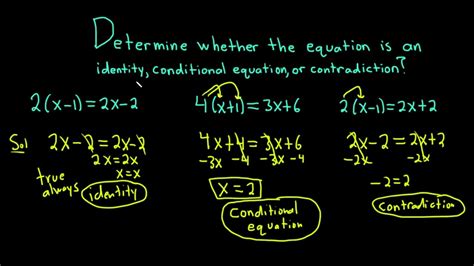 Determine whether the equation is an
identity, conditional equation, or contradiction?
2(x-1)=2x-2
4(x+1)=3x+6
2(x-1)=2x+2
Sol
2x-2=2x-2
2x=2x
x=x
true
always
identity
4x+4=3x+6
-3x -4 -3x -4
x=2
Conditional
equation
2x-2=2x+2
-2x -2x
-2=2
contradiction